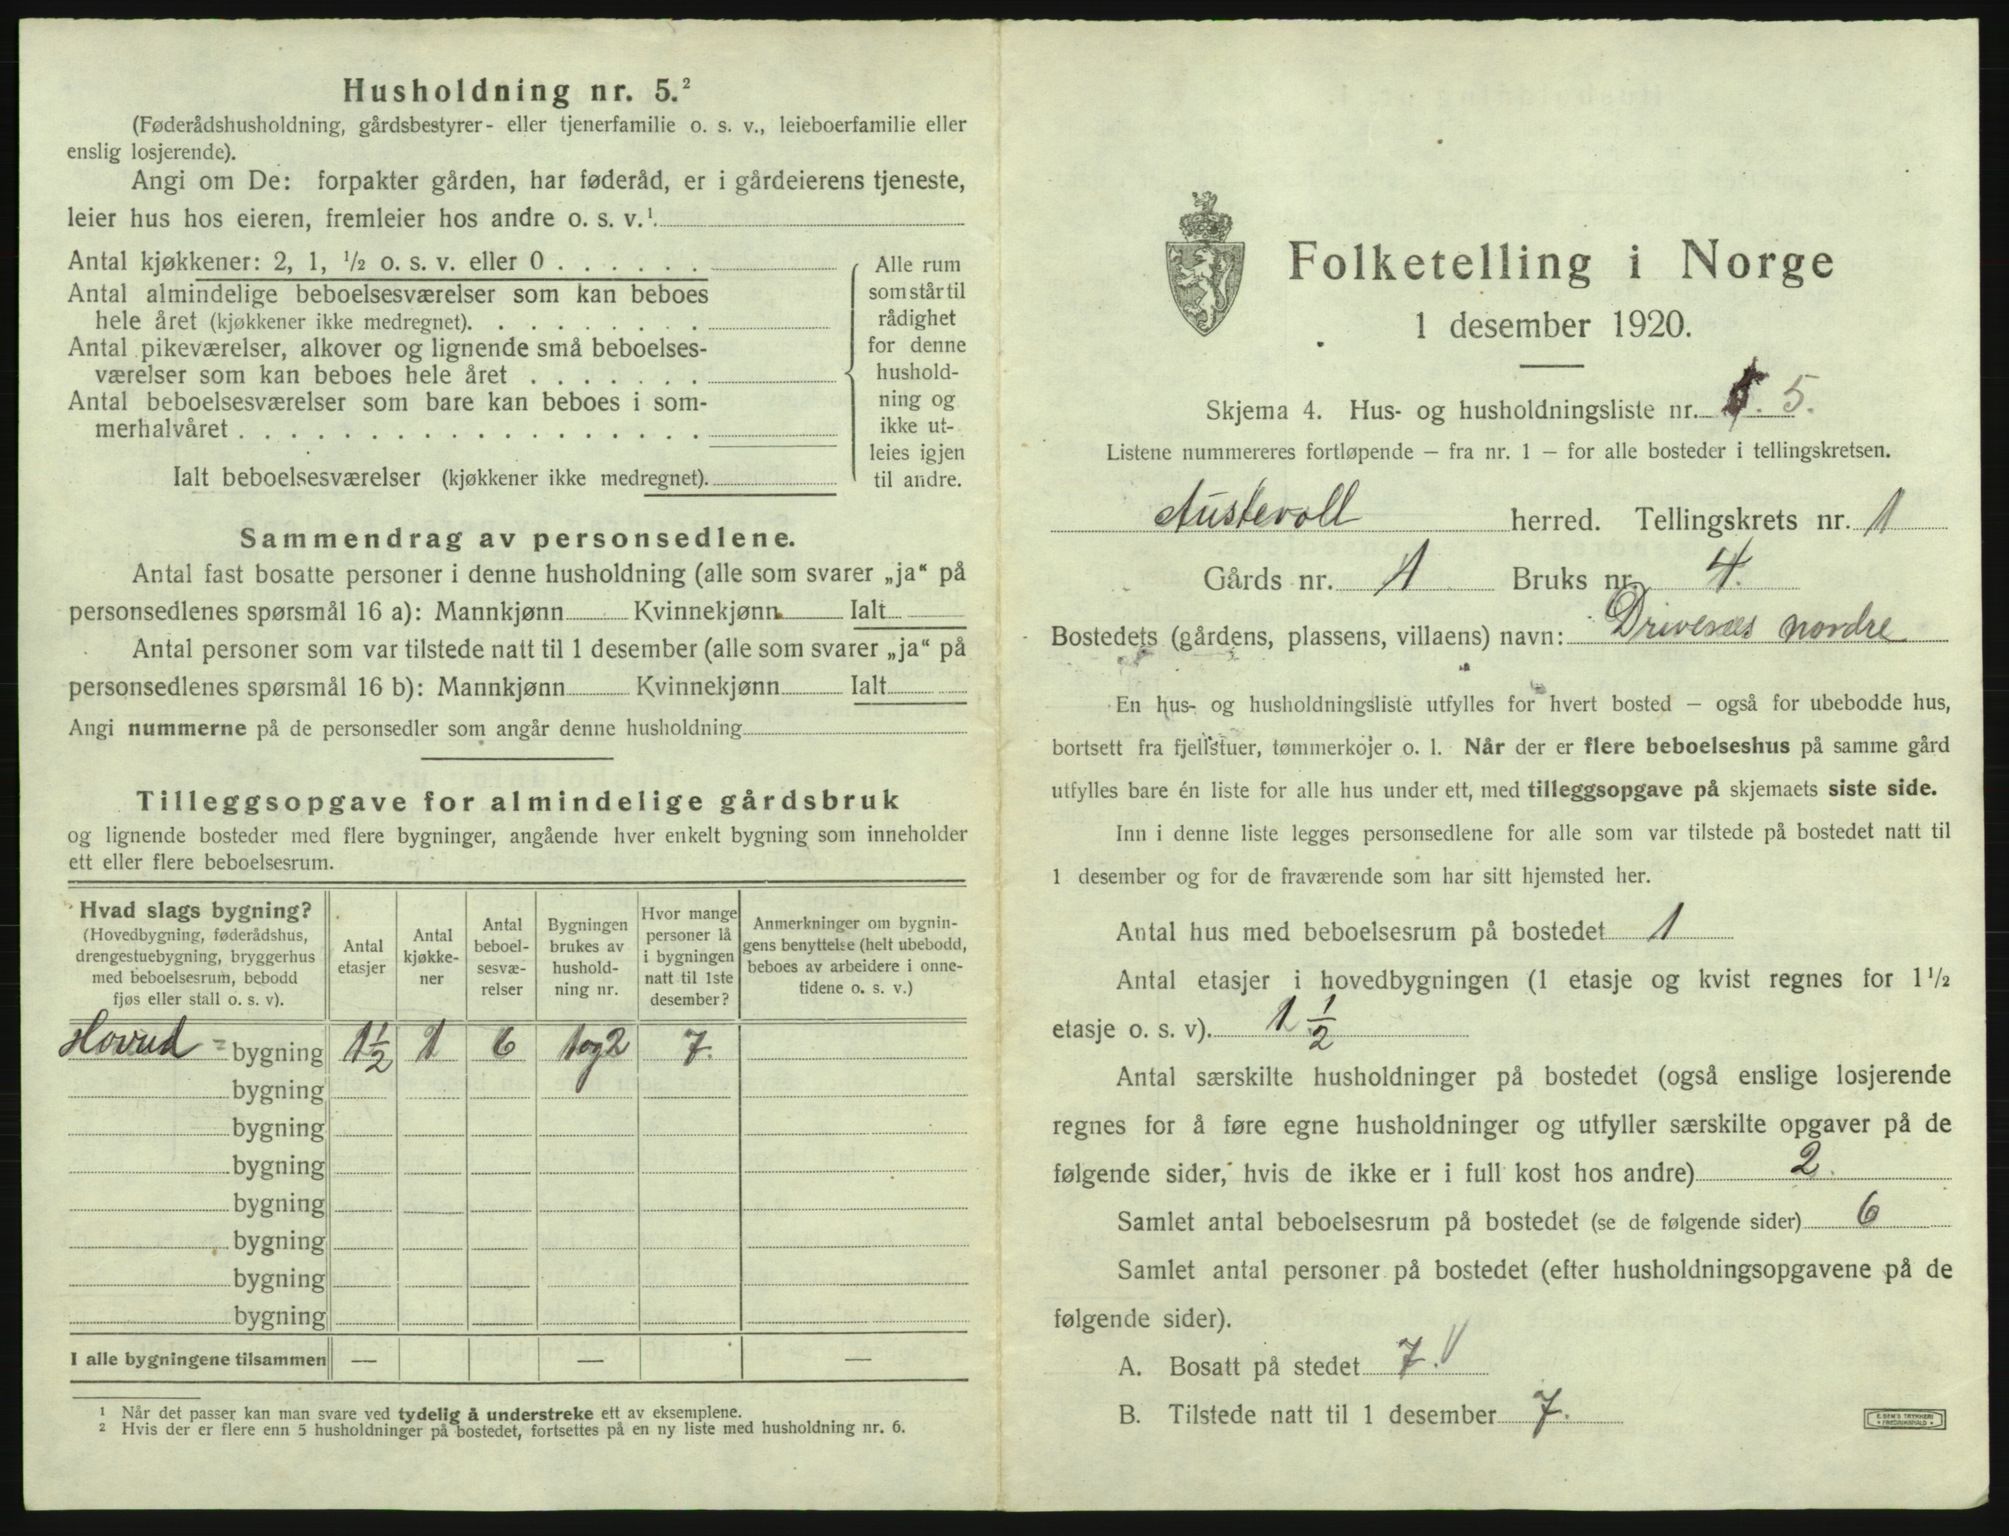 Husholdning nr. 5.²
(Føderådshusholdning, gårdsbestyrer- eller tjenerfamilie o. s. v., leieboerfamilie eller
enslig losjerende).
Angi om De: forpakter gården, har føderåd, er i gårdeierens tjeneste,
leier hus hos eieren, fremleier hos andre o. s. v.¹
Antal kjøkkener: 2, 1, ½ o. s. v. eller 0
Antal almindelige beboelsesværelser som kan beboes
hele året (kjøkkener ikke medregnet).
Antal pikeværelser, alkover og lignende små beboelses-
værelser som kan beboes hele året
Antal beboelsesværelser som bare kan beboes i som-
merhalvåret
Ialt beboelsesværelser (kjøkkener ikke medregnet).
Alle rum
som står til
rådighet
for denne
hushold-
ning og
ikke ut-
leies igjen
til andre.
Sammendrag av personsedlene.
Antal fast bosatte personer i denne husholdning (alle som svarer „ja“ på
personsedlenes spørsmål 16 a): Mannkjønn Kvinnekjønn Ialt
Antal personer som var tilstede natt til 1 desember (alle som svarer „ja“ på
personsedlenes spørsmål 16 b): Mannkjønn Kvinnekjønn Ialt
Angi nummerne på de personsedler som angår denne husholdning
Tilleggsopgave for almindelige gårdsbruk
og lignende bosteder med flere bygninger, angående hver enkelt bygning som inneholder
ett eller flere beboelsesrum.
Hvad slags bygning?
(Hovedbygning, føderådshus,
drengestuebygning, bryggerhus
med beboelsesrum, bebodd
fjøs eller stall o. s. v).
Antal
etasjer
Antal
kjøkke-
ner
Antal
beboel-
sesvæ-
relser
Bygningen
brukes av
hushold-
ning nr.
Hvor mange
personer lå
i bygningen
natt til 1ste
desember?
Anmerkninger om bygnin-
gens benyttelse (helt ubebodd,
beboes av arbeidere i onne-
tidene o. s. v.)
Hovud = bygning 1½ 1 6 1og2 7.
bygning
bygning
bygning
bygning
bygning
bygning
bygning
I alle bygningene tilsammen — — —
¹ Når det passer kan man svare ved tydelig å understreke ett av eksemplene.
² Hvis der er flere enn 5 husholdninger på bostedet, fortsettes på en ny liste med husholdning nr. 6.
Folketelling i Norge
1 desember 1920.
Skjema 4. Hus- og husholdningsliste nr. 5.
Listene nummereres fortløpende — fra nr. 1 — for alle bosteder i tellingskretsen.
Austevoll herred. Tellingskrets nr. 1
Gårds nr. 1 Bruks nr. 4.
Bostedets (gårdens, plassens, villaens) navn: Drivenes nordre
En hus- og husholdningsliste utfylles for hvert bosted — også for ubebodde hus,
bortsett fra fjellstuer, tømmerkojer o. l. Når der er flere beboelseshus på samme gård
utfylles bare én liste for alle hus under ett, med tilleggsopgave på skjemaets siste side.
Inn i denne liste legges personsedlene for alle som var tilstede på bostedet natt til
1 desember og for de fraværende som har sitt hjemsted her.
Antal hus med beboelsesrum på bostedet 1
Antal etasjer i hovedbygningen (1 etasje og kvist regnes for 1½
etasje o. s. v). 1½
Antal særskilte husholdninger på bostedet (også enslige losjerende
regnes for å føre egne husholdninger og utfyller særskilte opgaver på de
følgende sider, hvis de ikke er i full kost hos andre) 2.
Samlet antal beboelsesrum på bostedet (se de følgende sider) 6
Samlet antal personer på bostedet (efter husholdningsopgavene på de
følgende sider).
A. Bosatt på stedet 7.
B. Tilstede natt til 1 desember 7.